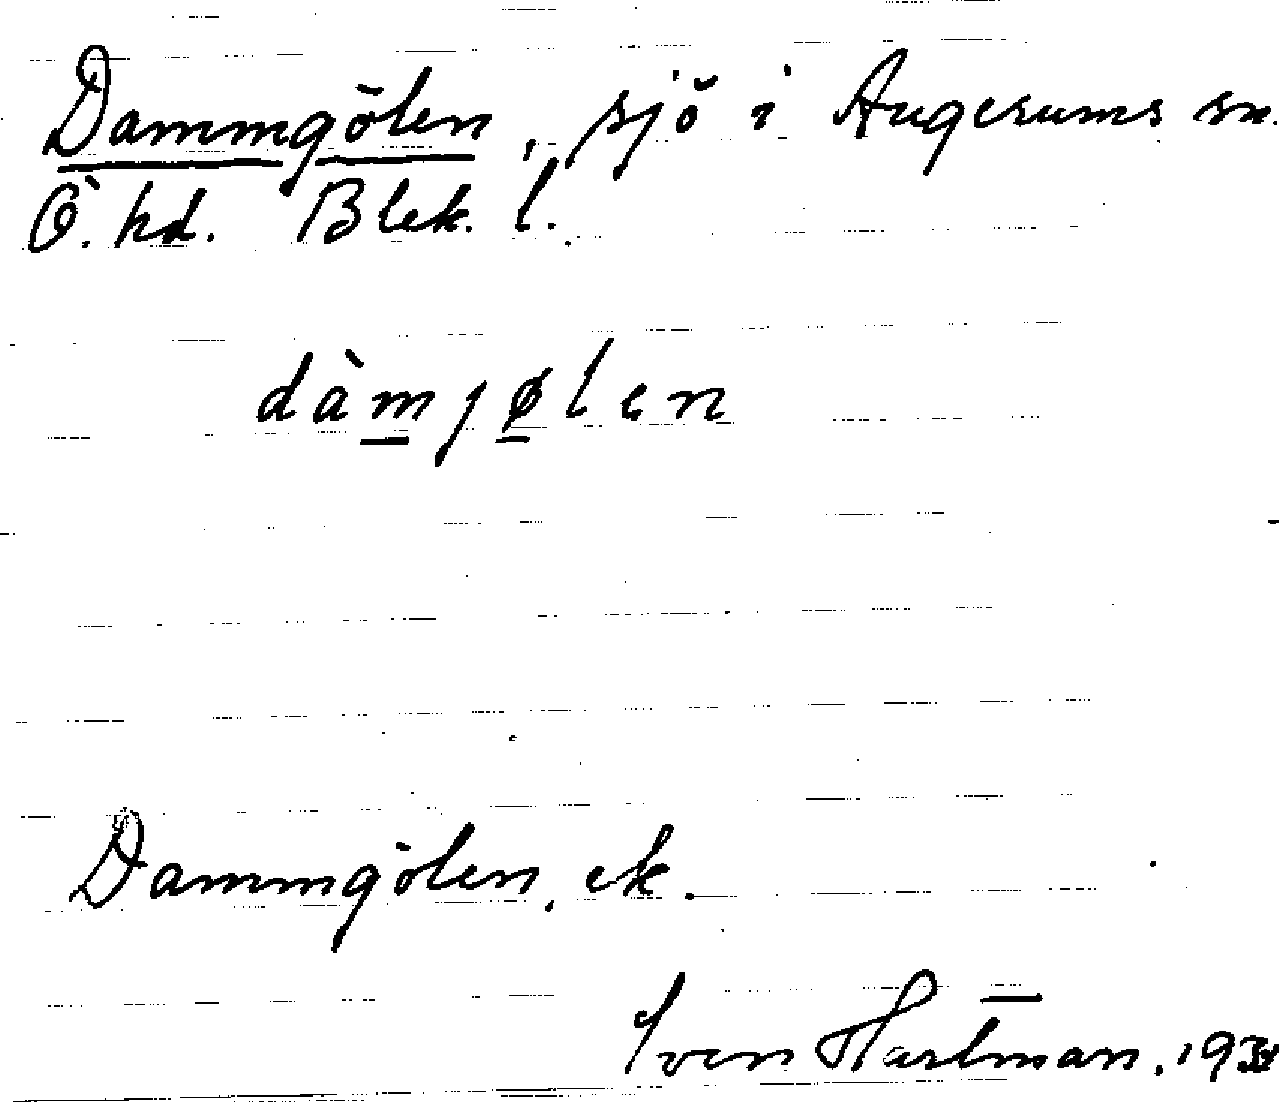 Dammgölen, sjö i Augerums sn.
Ö. hd. Blek. l.
dàmjølen
Dammgölen, ek.
Sven Hartman.